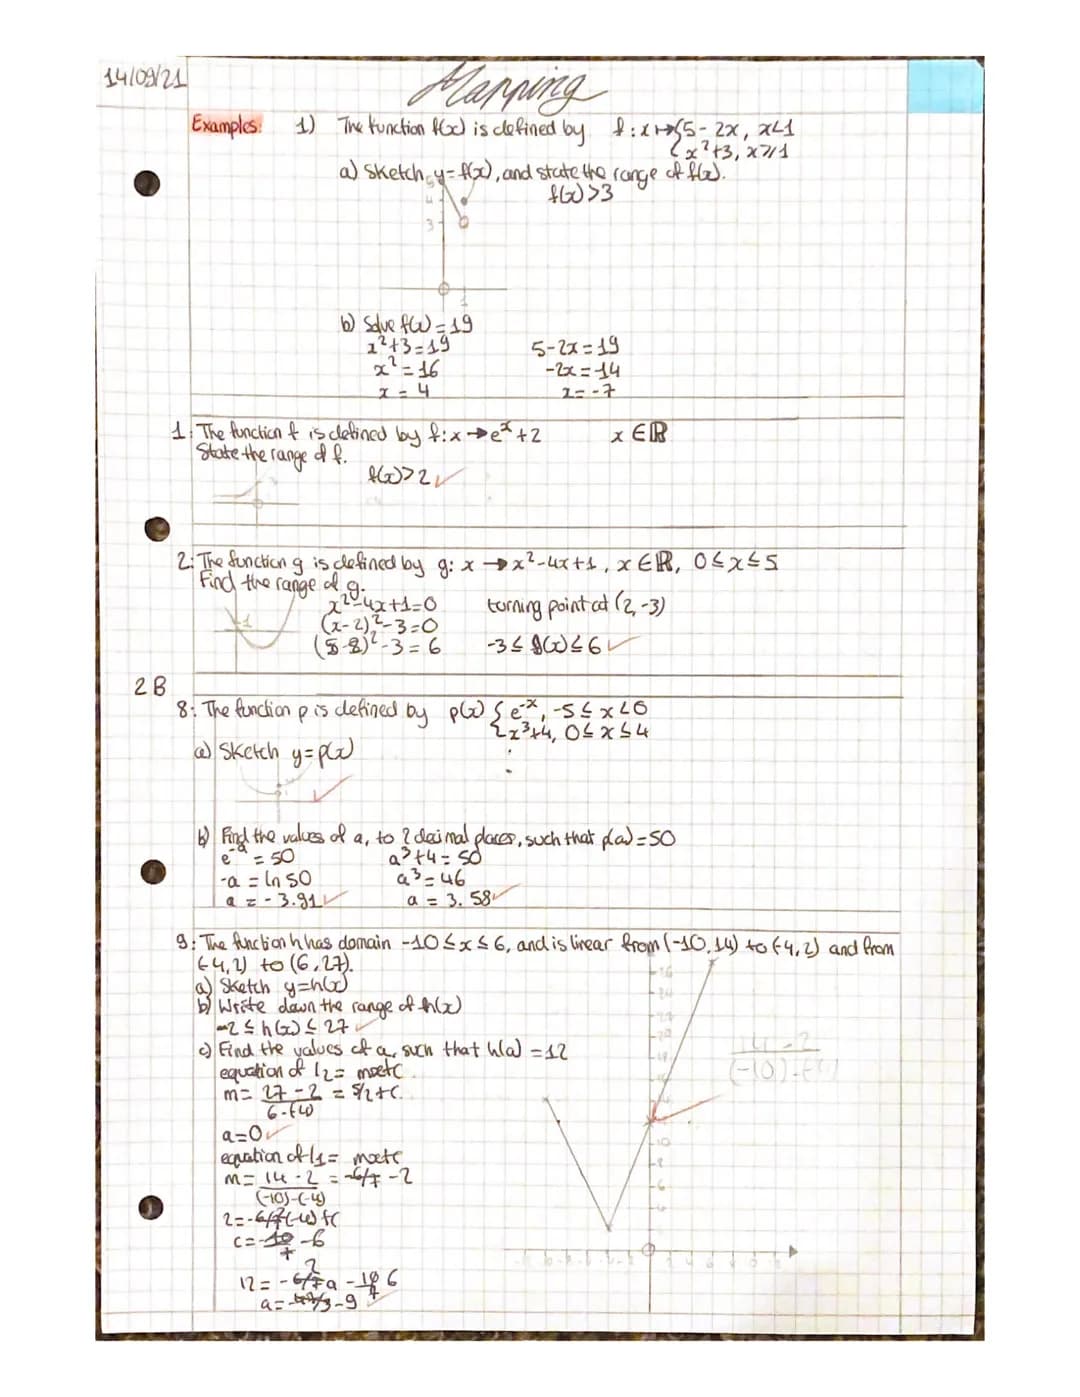 14/09/21
Mapping
Examples: 1) The function f(x) is defined by f:x↦{5-2x, x<1
{x²+3, x≥1
a) Sketch y=f(x), and state the range of f(x).
f(x)>3
5
4
3
1
b) Solve f(x)=19
x²+3=19 5-2x=19
x²=16 -2x=14
x=4 x=-7
1: The function f is defined by f:x→eˣ+2 x∈ℝ
State the range of f.
f(x)>2 ✓
2: The function g is defined by g: x→x²-4x+1, x∈ℝ, 0≤x≤5
Find the range of g.
1
x²-4x+1=0 turning point at (2,-3)
(x-2)²-3=0
(5-2)²-3=6 -3≤g(x)≤6 ✓
2B
8: The function p is defined by p(x) {e⁻ˣ, -5≤x<0
{x³+4, 0≤x≤4
a) Sketch y=p(x)
b) Find the values of a, to 2 decimal places, such that p(a)=50
e⁻ᵃ=50 a³+4=50
-a=ln50 a³=46
a=-3.91 ✓ a=3.58 ✓
9: The function h has domain -10≤x≤6, and is linear from (-10,14) to (-4,2) and from
(-4,2) to (6,27).
a) Sketch y=h(x)
b) Write down the range of h(x)
2≤h(x)≤27 ✓
c) Find the values of a, such that h(a)=12
equation of l2= mx+c
m= 27-2 = 5/2+c
6-(-4)
a=0 ✓
equation of l1= mx+c
m= 14-2 = -6/7 -2
(-10)-(-4)
2=-6/7 2(-4)+c
c=-10/7 -6
12=-6/7 2a-10/7 6
a= -9 ✓
14-2
(-10)-(-4)